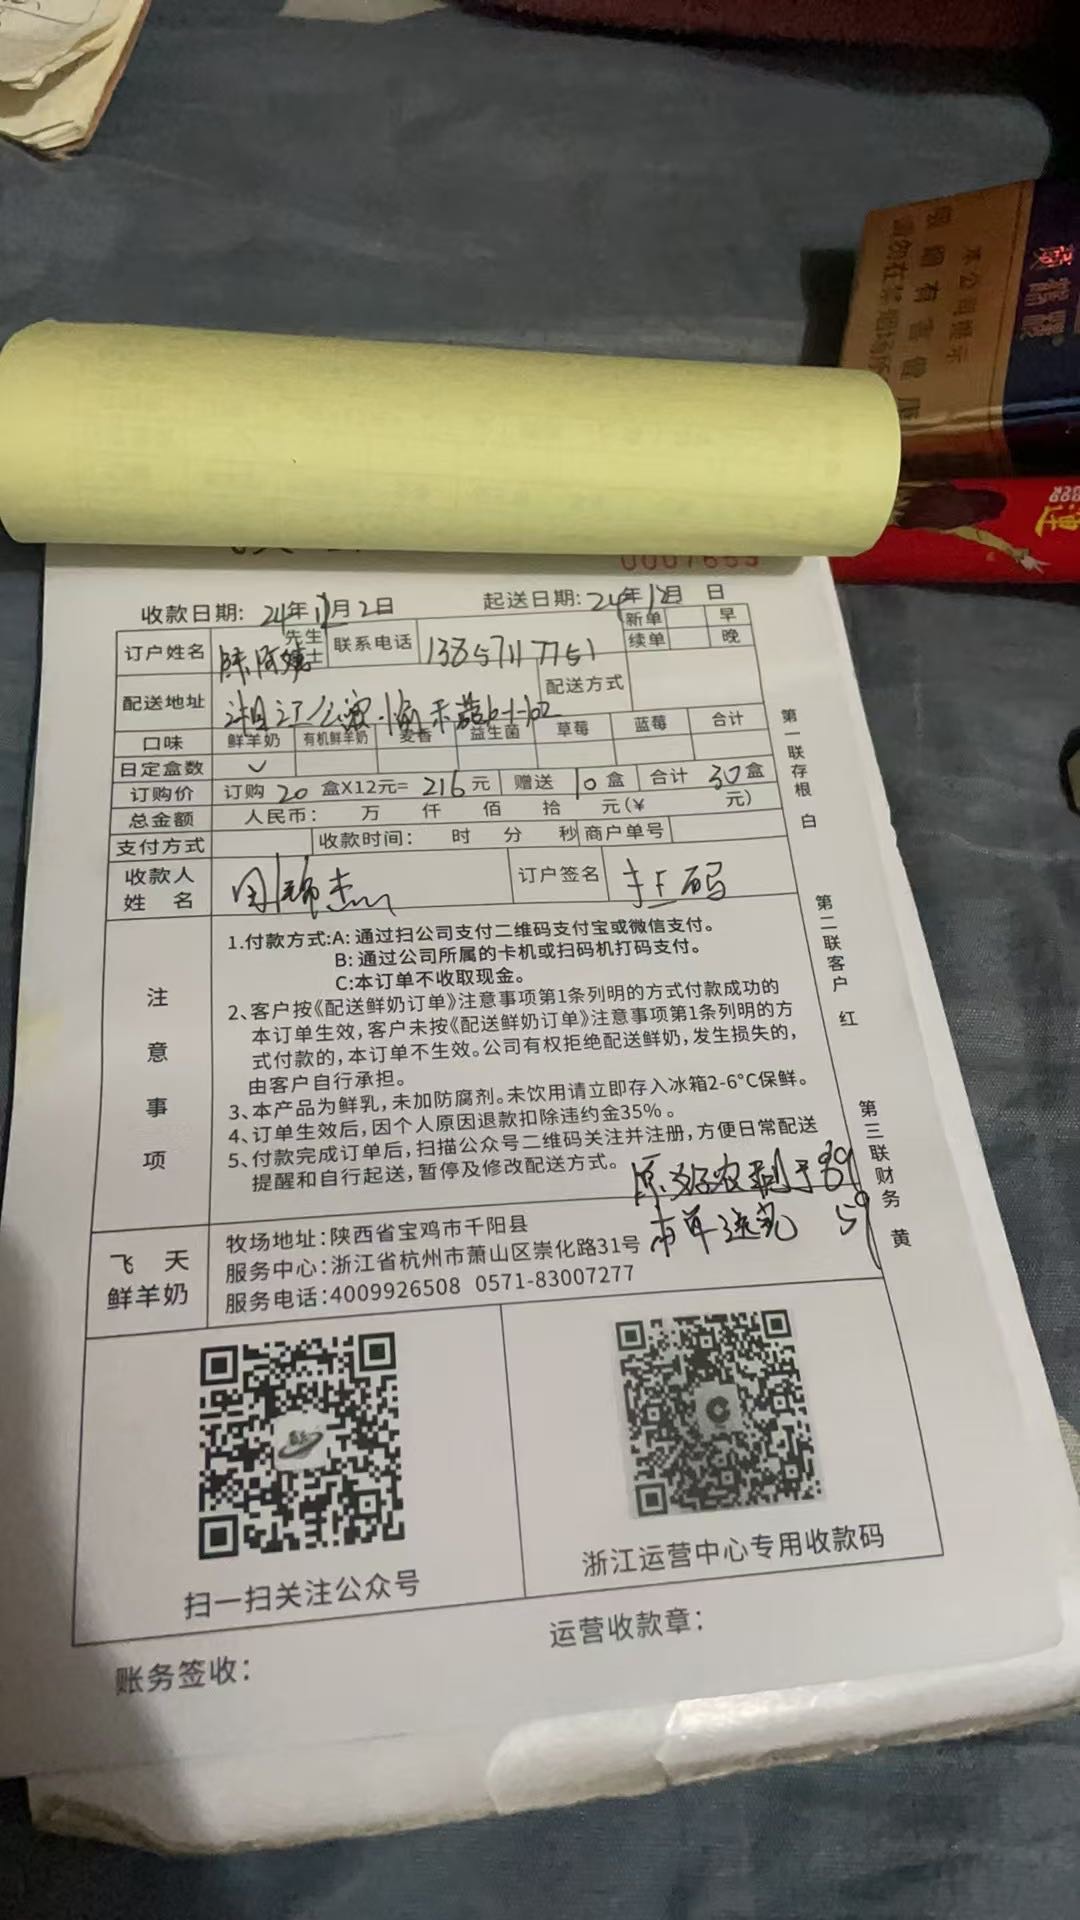 本公司提示
0007653
收款日期: 24年11月2日 起送日期: 24年12月 日
订户姓名 陈阿姨 先生 女士 联系电话 13857117751 新单 早
续单 晚
配送地址 湘江公寓 配送方式
口味 鲜羊奶 有机鲜羊奶 麦香 益生菌 草莓 蓝莓 合计
日定盒数 ✓
订购价 订购 20 盒X12元= 216 元 赠送 10 盒 合计 30 盒
总金额 人民币: 万 仟 佰 拾 元(¥ 元)
支付方式 收款时间: 时 分 秒 商户单号
收款人姓名 订户签名 扫码
注意事项
1.付款方式:A: 通过扫公司支付二维码支付宝或微信支付。
B: 通过公司所属的卡机或扫码机打码支付。
C:本订单不收取现金。
2、客户按《配送鲜奶订单》注意事项第1条列明的方式付款成功的
本订单生效,客户未按《配送鲜奶订单》注意事项第1条列明的方
式付款的,本订单不生效。公司有权拒绝配送鲜奶,发生损失的,
由客户自行承担。
3、本产品为鲜乳,未加防腐剂。未饮用请立即存入冰箱2-6°C保鲜。
4、订单生效后,因个人原因退款扣除违约金35%。
5、付款完成订单后,扫描公众号二维码关注并注册,方便日常配送
提醒和自行起送,暂停及修改配送方式。
59
飞天鲜羊奶
牧场地址:陕西省宝鸡市千阳县
服务中心:浙江省杭州市萧山区崇化路31号
服务电话:4009926508 0571-83007277
扫一扫关注公众号
浙江运营中心专用收款码
账务签收:
运营收款章:
第一联存根 白
第二联客户 红
第三联财务 黄